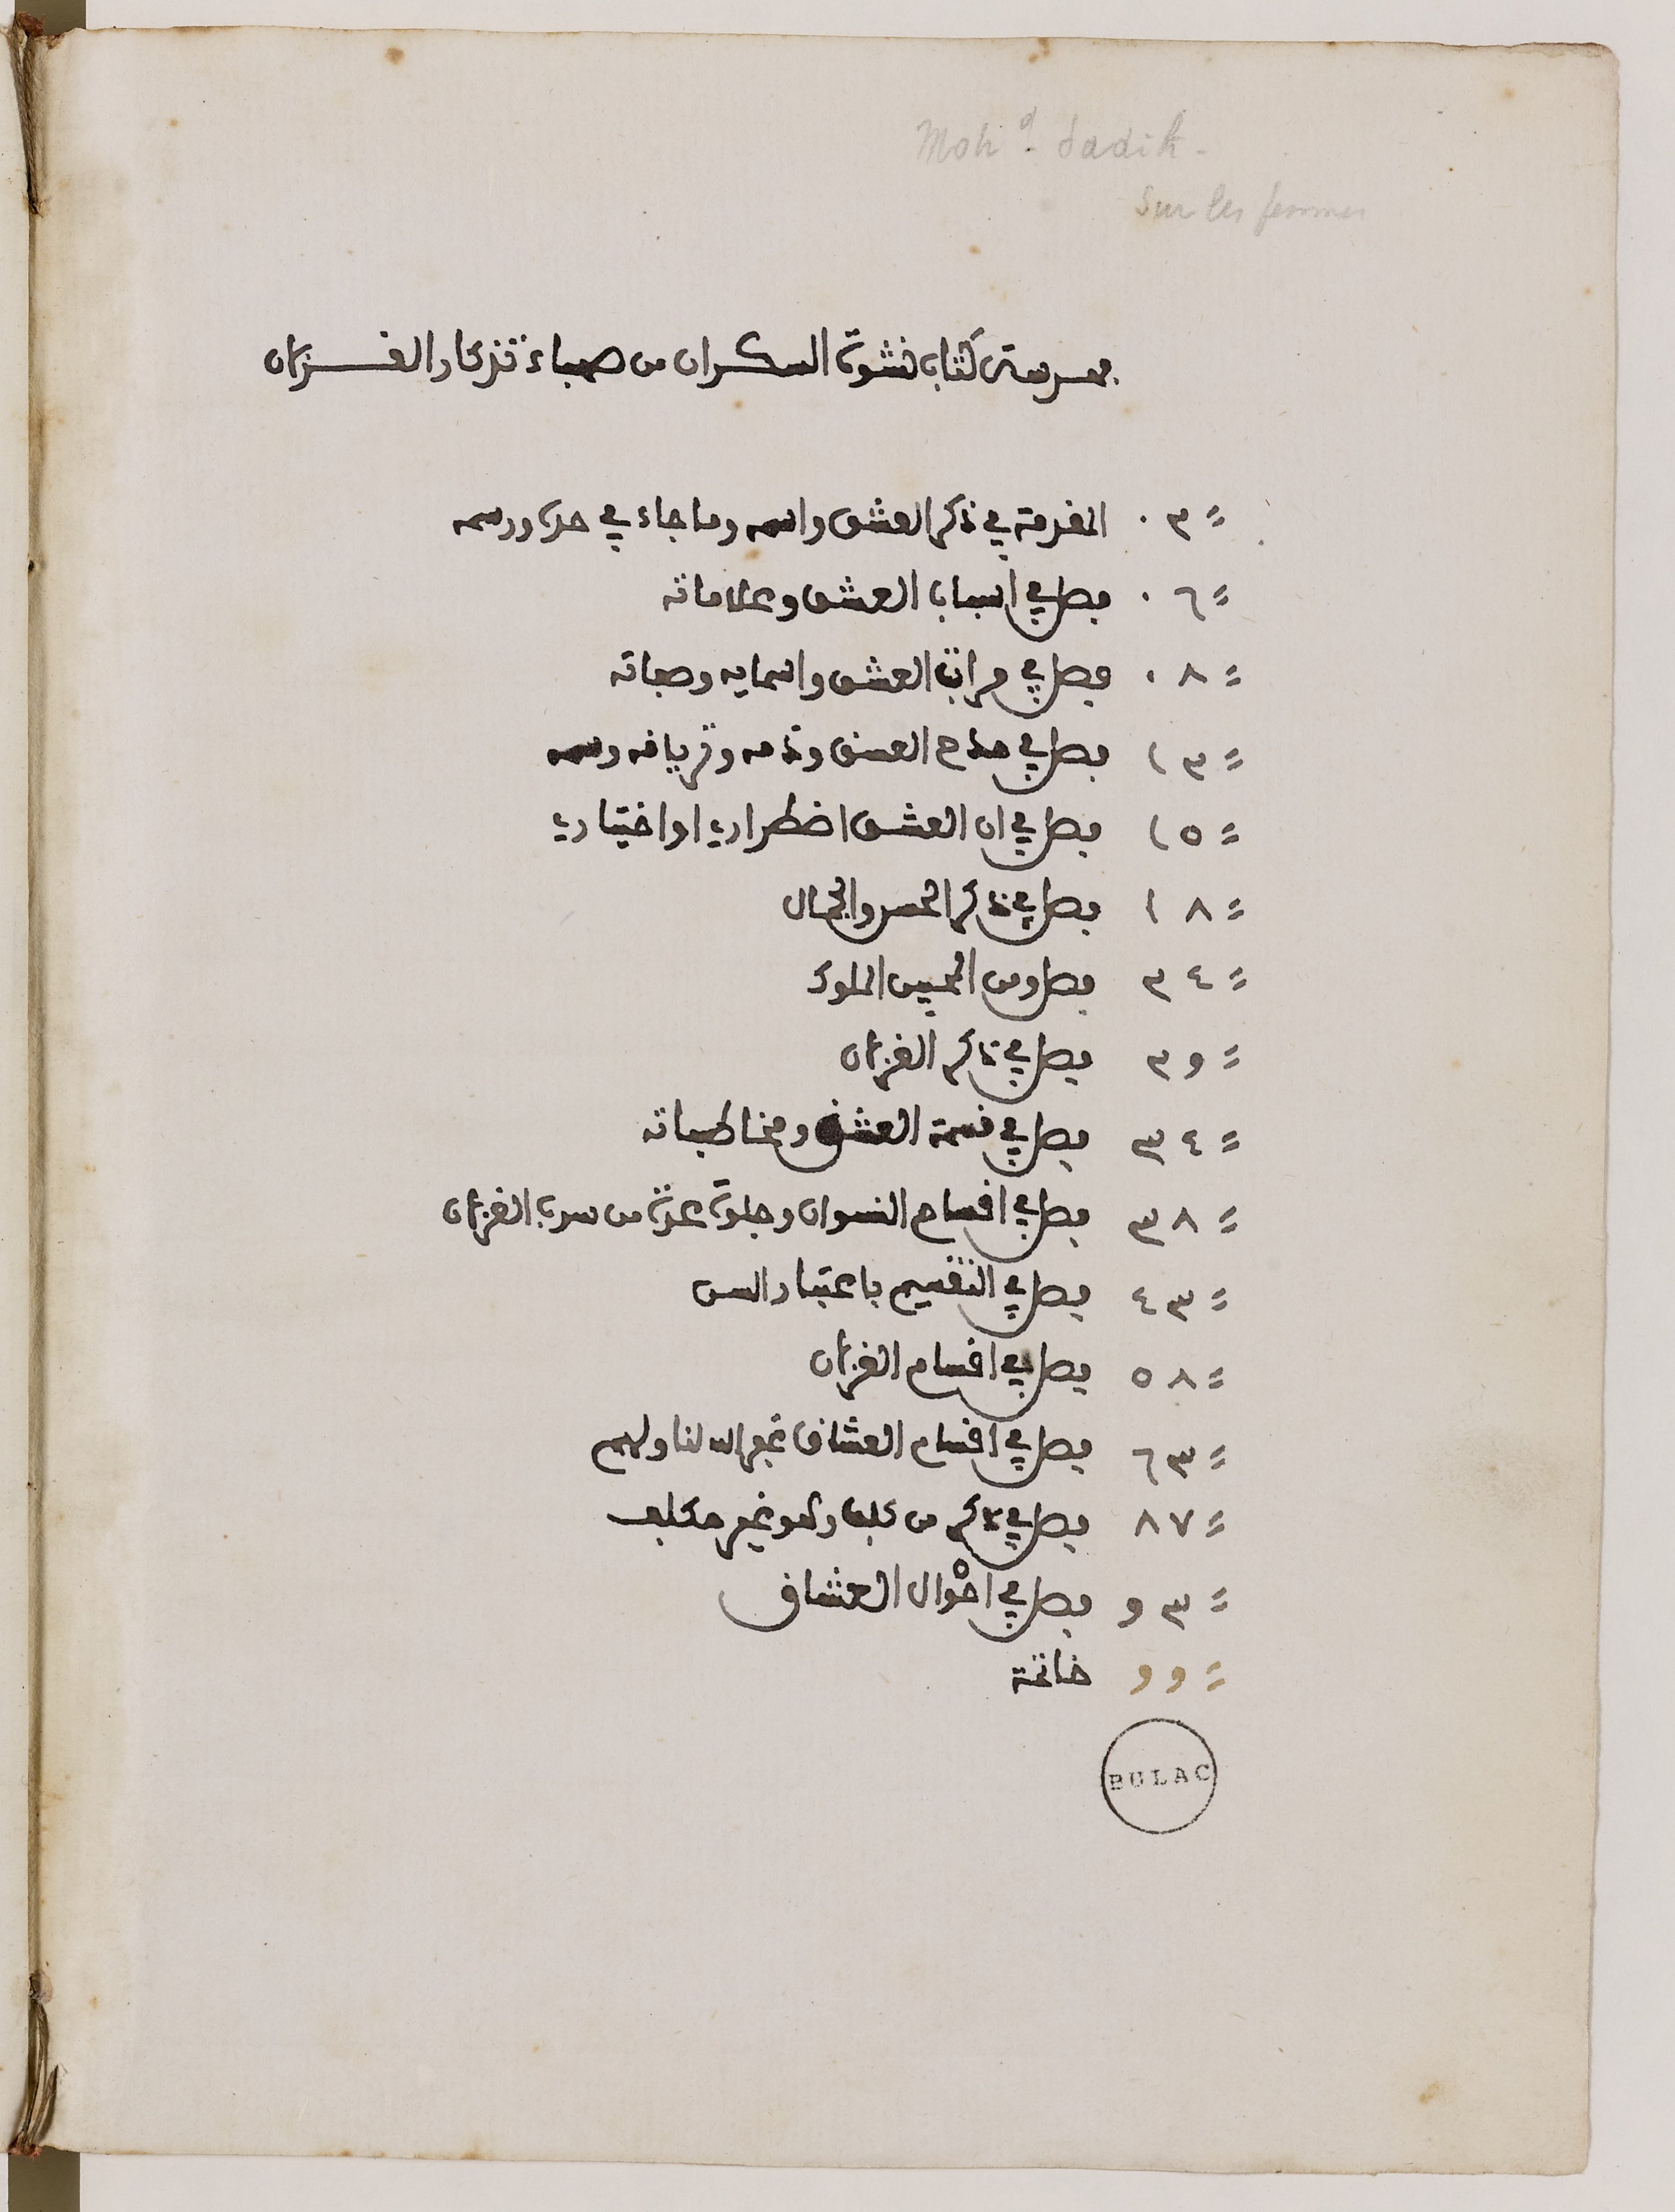 Moh.d Sadik.
Sur les femmes
فهرسة كتاب نشوة السكران من صهباء تذكار الغزلان
٠٣ المقدمة في ذكر العشق واسمه وما جاء في حده ورسمه
٠٦ فصل في اسباب العشق وعلاماته
٠٨ فصل في مراتب العشق واسمايه وصفاته
١٣ فصل في مدح العشق وذمه وترياقه وسمه
١٥ فصل في ان العشق اضطراري او اختياري
١٨ فصل في ذكر الحسن والجمال
٢٤ فصل ومن المحبين الملوك
٢٩ فصل في ذكر الغزلان
٣٤ فصل في قسمة العشق ومخاطباته
٣٨ فصل في اقسام النسوان وجلوة عدة من سرب الغزلان
٤٣ فصل في التقسيم باعتبار السن
٥٨ فصل في اقسام الغزلان
٦٣ فصل في اقسام العشاق غفر الله لنا ولهم
٨٧ فصل في ذكر من كلف وهو غير مكلف
٩٣ فصل في احوال العشاق
٩٩ خاتمة
BULAC